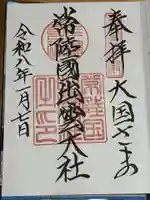 奉拝
大国さま
常陸國出雲大社
令和八年一月七日